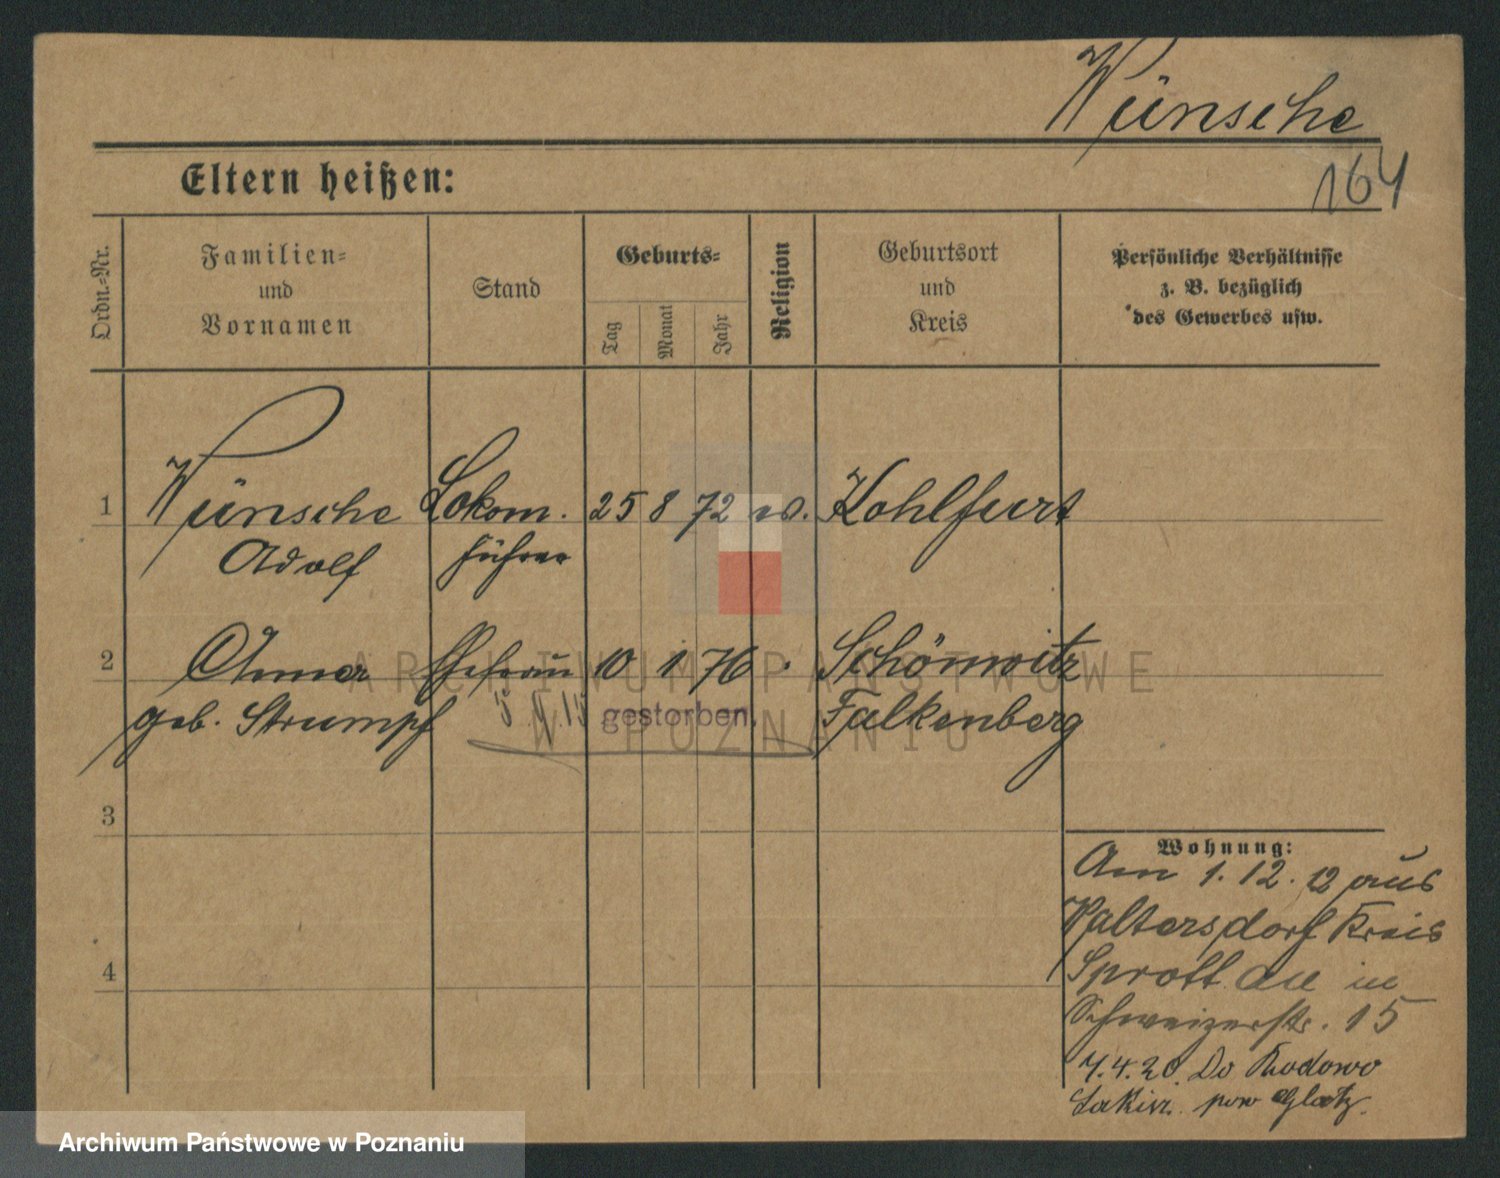 Wünsche
164
Eltern heißen:
Ordn.-Nr.
Familien-
und
Vornamen
Stand
Geburts-
Tag
Monat
Jahr
Religion
Geburtsort
und
Kreis
Persönliche Verhältnisse
z. B. bezüglich
des Gewerbes usw.
1 Wünsche Lokom. 25 8 72 ev. Kohlfurt
Adolf führer
2 Anna Ehefrau 10 1 76 Schönwitz
geb. Strumpf gestorben. Falkenberg
3
Wohnung:
Am 1. 12. 12 aus
Waltersdorf Kreis
4
Sprottau in
Schweizerstr. 15
7.4.20. Do Kudowo
pow Glatz.
ARCHIWUM PAŃSTWOWE
W POZNANIU
Archiwum Państwowe w Poznaniu